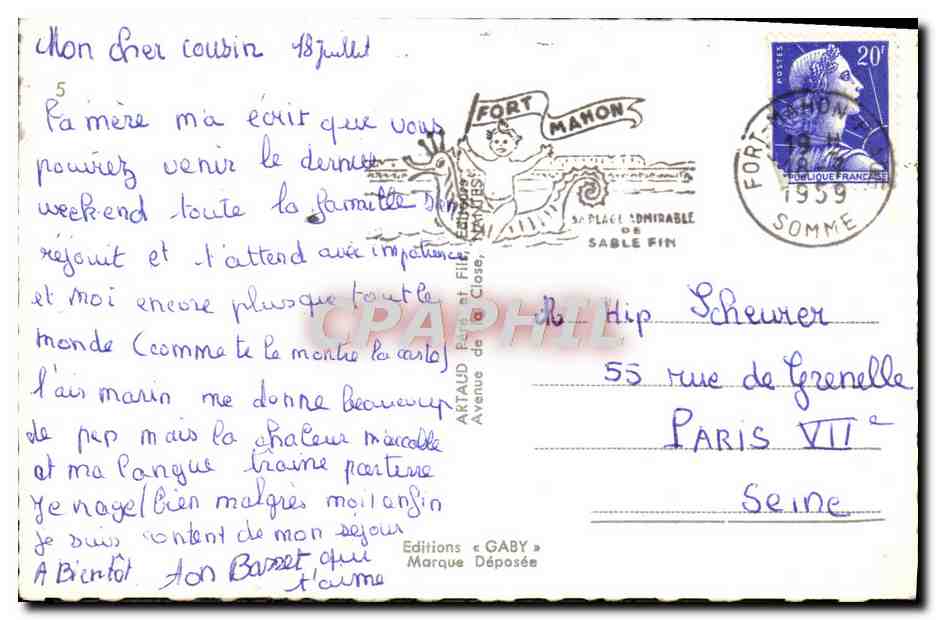 Mon cher cousin 18 juillet
5
Ta mère m'a écrit que vous
pouvez venir le dernier
week-end toute la famille s'en
réjouit et t'attend avec impatience
et moi encore plus que tout le
monde (comme te le montre la carte)
l'air marin me donne beaucoup
de pep mais la chaleur m'accable
et ma langue traine par terre
Je nage bien malgrès moi enfin
je suis content de mon sejour
A Bientôt ton Basset qui
t'aime
FORT MAHON
SA PLAGE ADMIRABLE
DE
SABLE FIN
POSTES 20F
REPUBLIQUE FRANCAISE
FORT-MAHON
1959
SOMME
ARTAUD Père et Fils, Editeurs
Avenue de la Close, NANTES
CPAPHIL
Hip Scheurer
55 rue de Grenelle
PARIS VIIe
Seine
Editions « GABY »
Marque Déposée